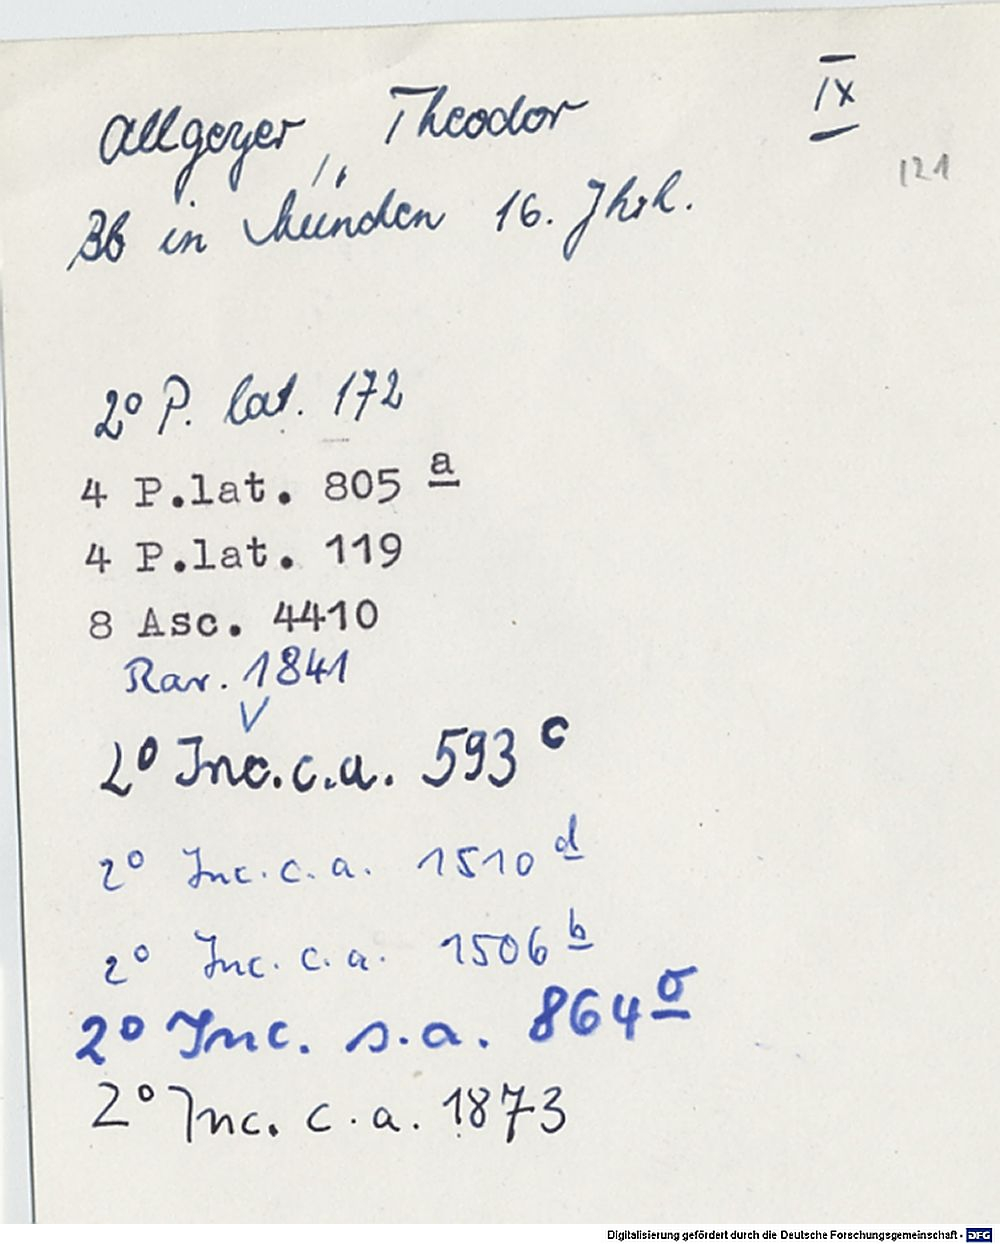 Allgeyer, Theodor
IX
121
Bb in München 16. Jhrh.
2° P. lat. 172
4 P.lat. 805 a
4 P.lat. 119
8 Asc. 4410
Rar. 1841
2° Inc.c.a. 593 c
2° Inc.c.a. 1510 d
2° Inc.c.a. 1506 b
2° Inc. s.a. 864
2° Inc. c.a. 1873
Digitalisierung gefördert durch die Deutsche Forschungsgemeinschaft - DFG